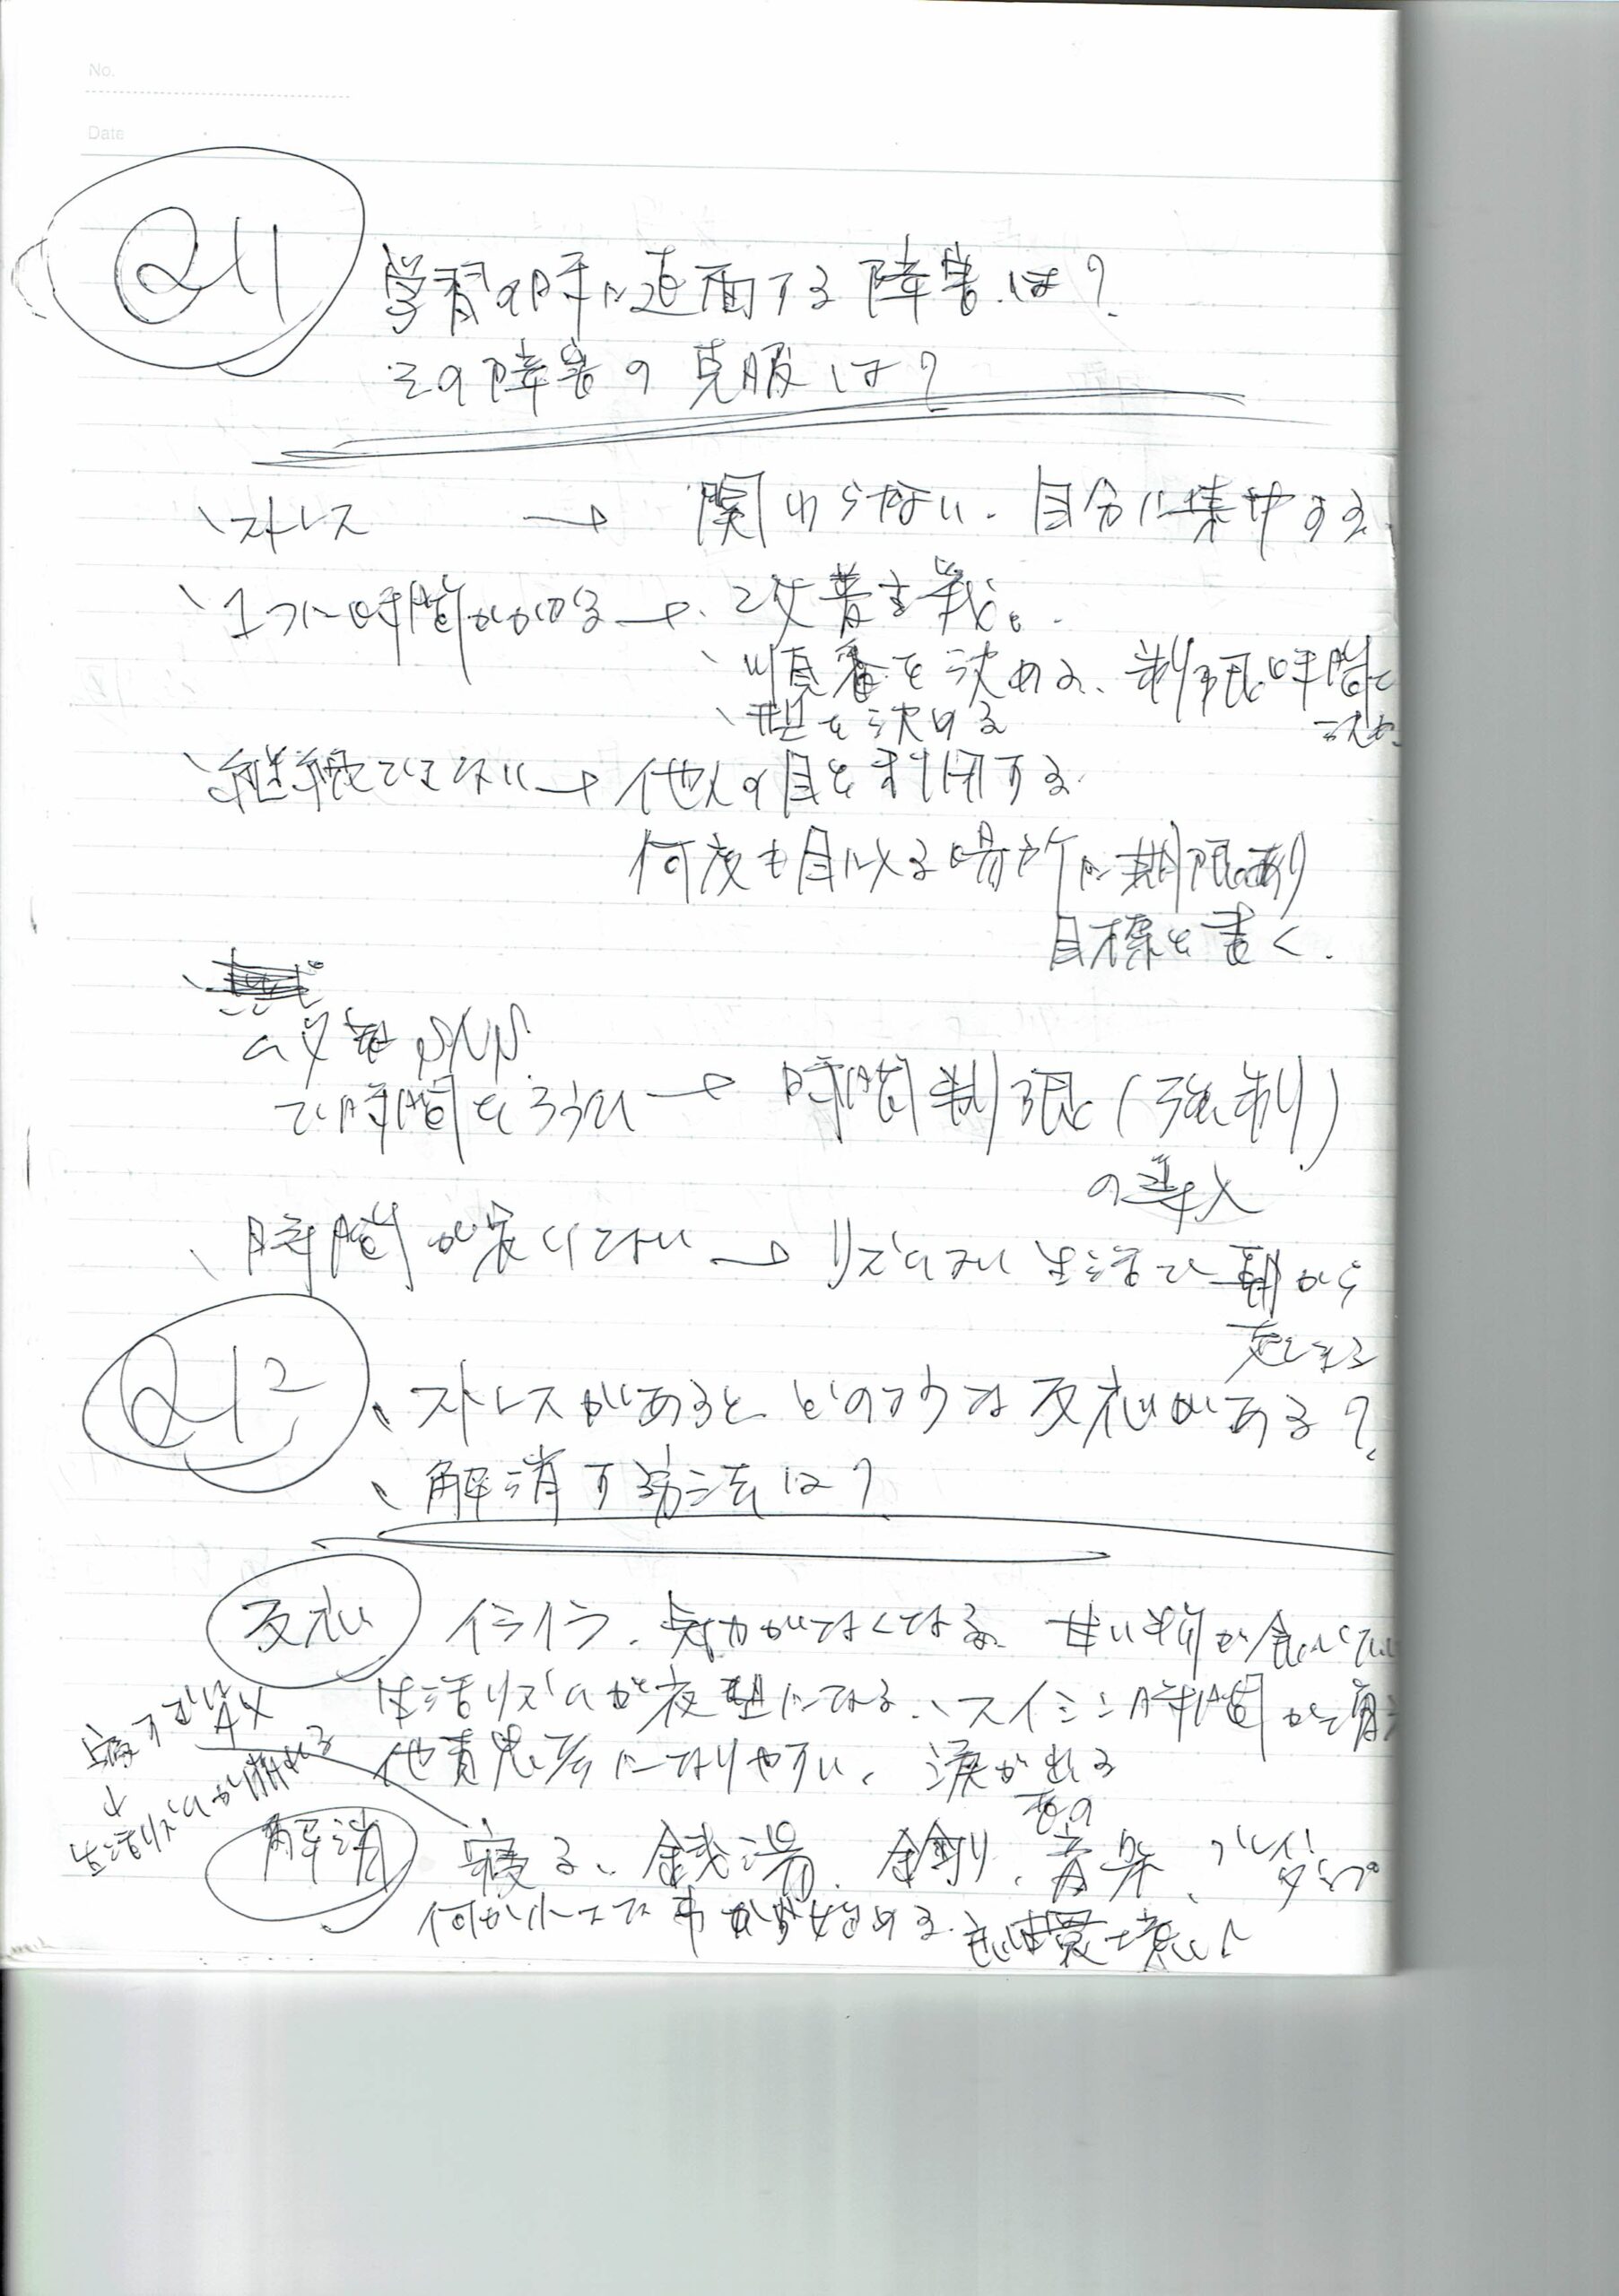 No.
Date
Q11
学習の時に直面する障害は?
その障害の克服は?
、ストレス → 関わらない、自分に集中する
、1つに時間がかかる → 、改善主義。
、順番を決める、制限時間を決め
、型を決める
、継続できない → 他人の目を利用する
何度も目に入る場所に期限あり
目標を書く.
SNS
で時間をろうひ → 時間制限(強制)
の導入
、時間が足りない → リズムよい生活で朝から
起きる
Q12
、ストレスがあるとどのような反応がある?
、解消する方法は?
反応 イライラ、気力がなくなる、甘い物が食べたい
生活リズムが夜型になる、、スイミン時間が
他責思考になりやすい、涙が出る
寝すぎはダメ
↓
生活リズムが崩れる
解消 寝る、銭湯、金剛、音楽、ブレイン
ダンプ
何か小さな事から始める
環境